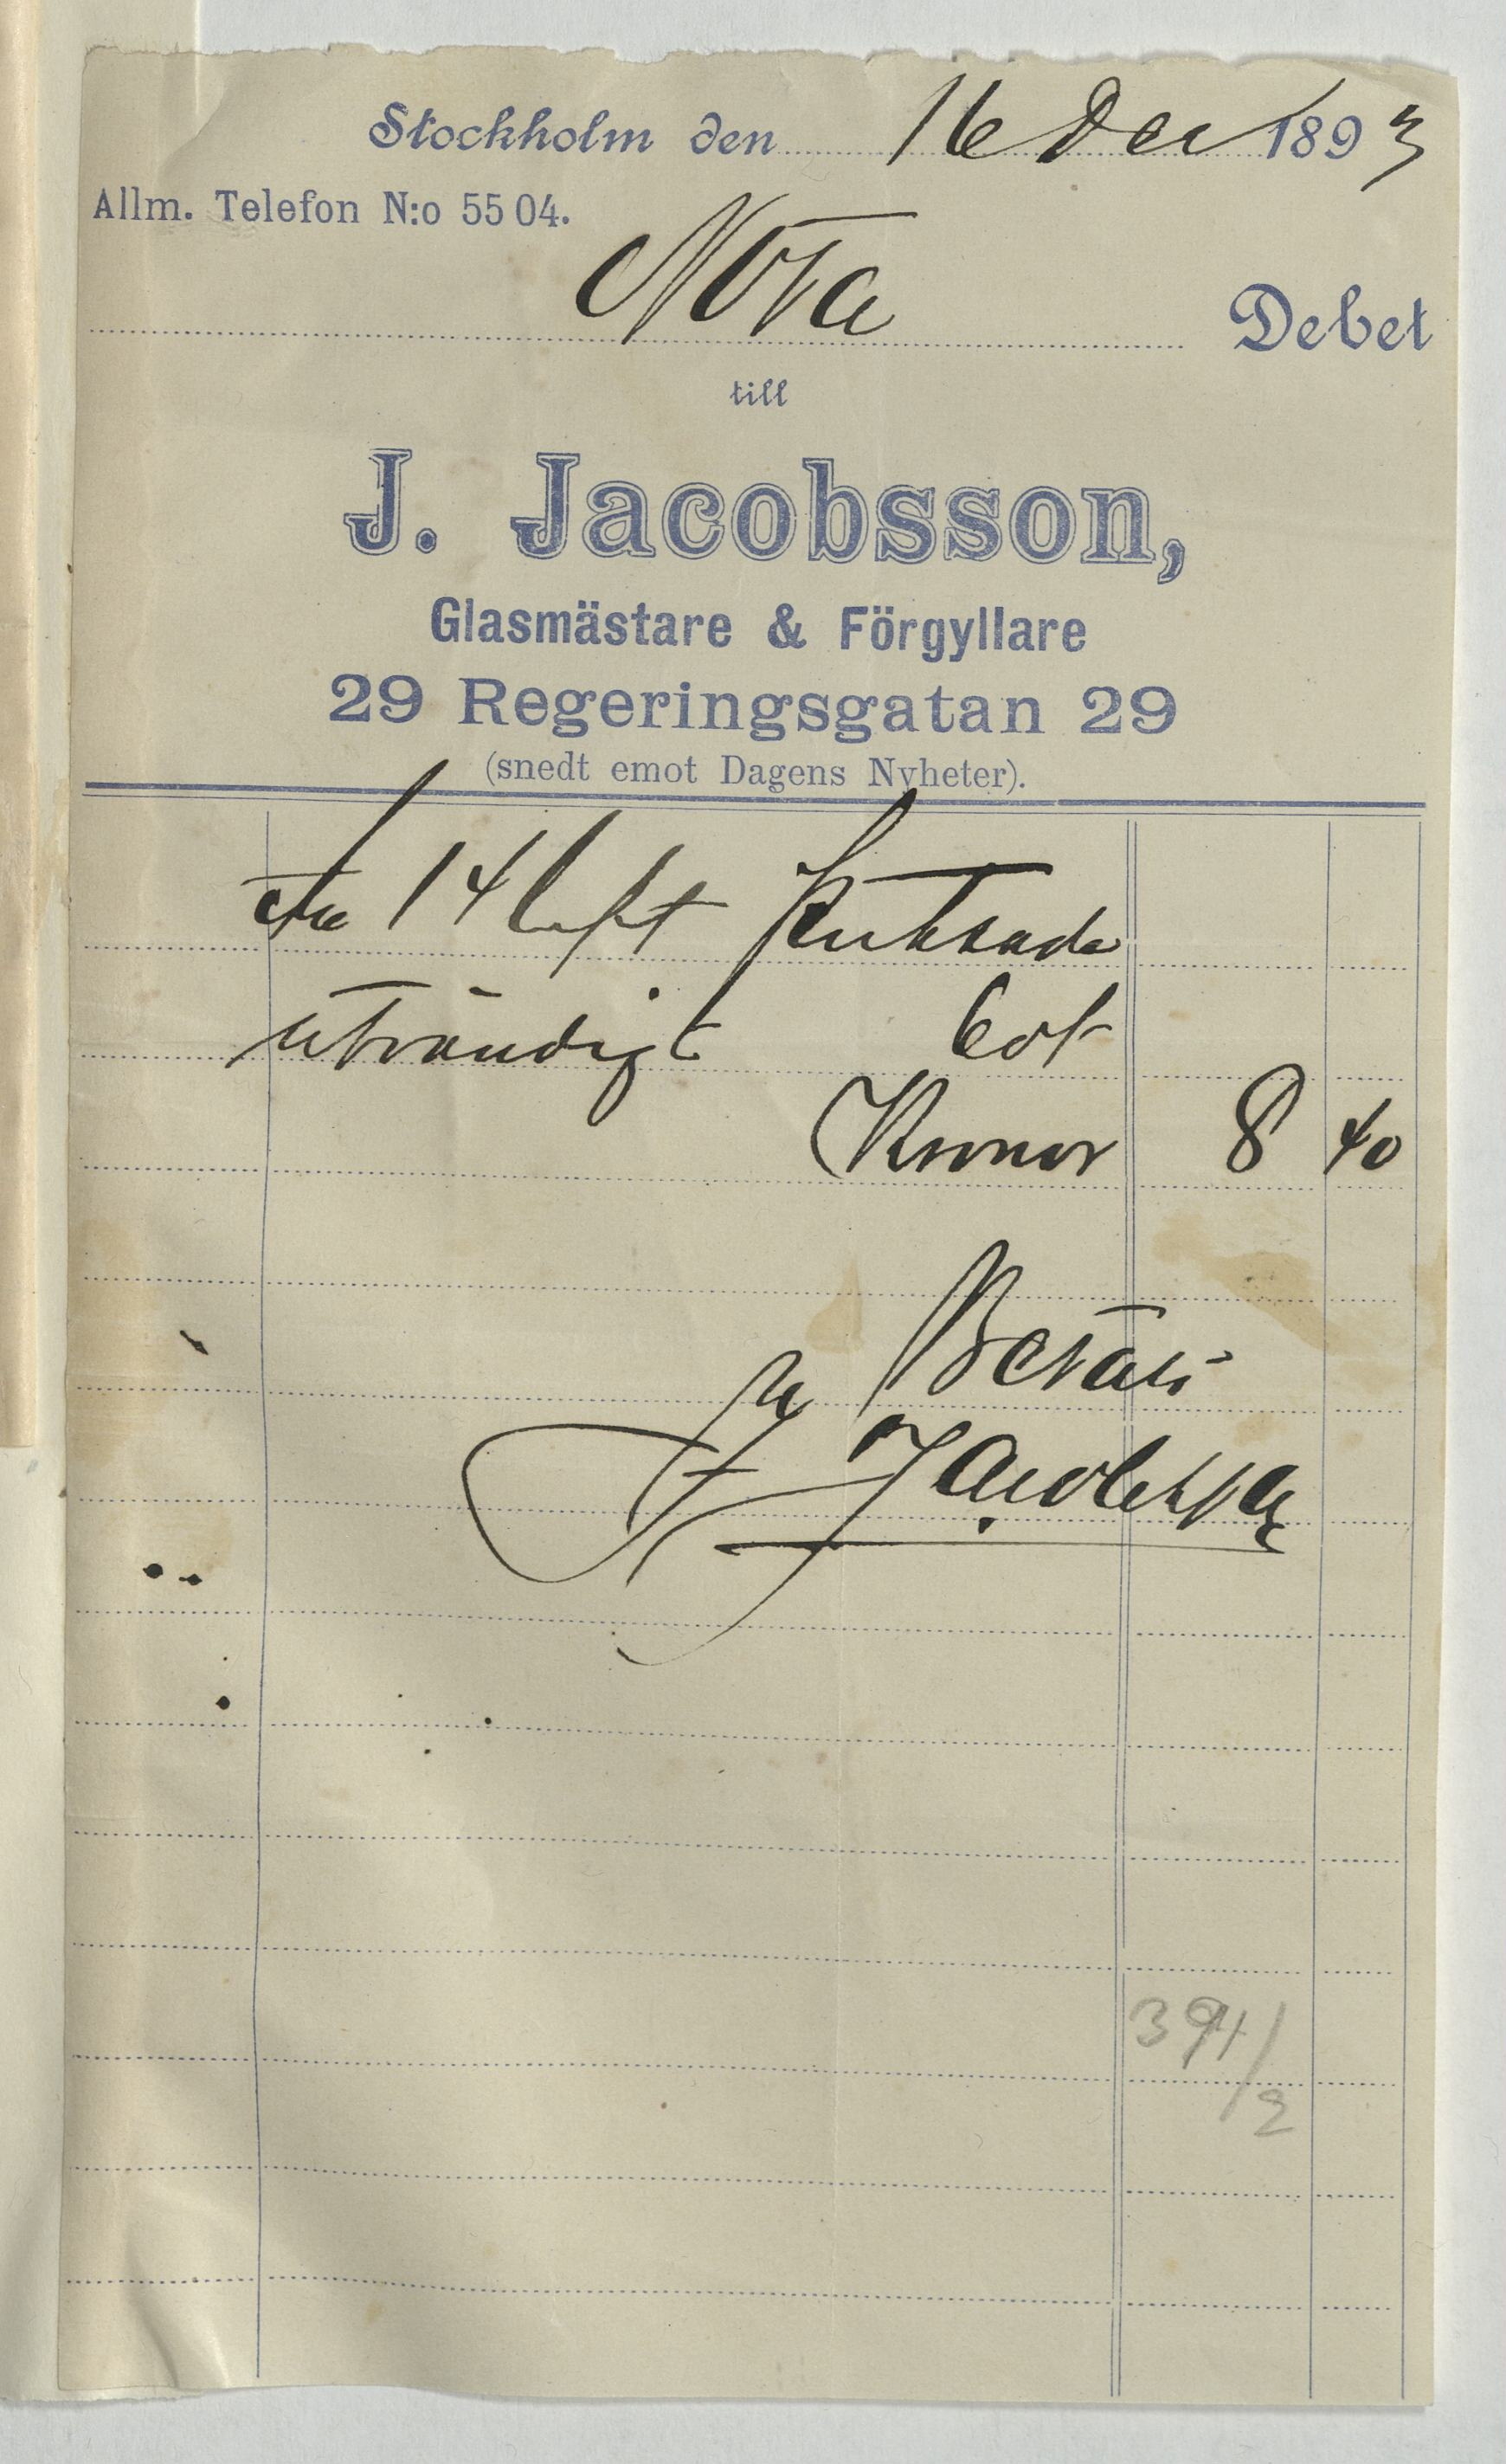 Stockholm den 16 Dec 1893
Allm. Telefon N:o 5504.
Nota Debet
till
J. Jacobsson,
Glasmästare & Förgyllare
29 Regeringsgatan 29
(snedt emot Dagens Nyheter).
14 luft
utvändigt 60
Kronor 8 40
Betalt
J Jacobsson
394/2